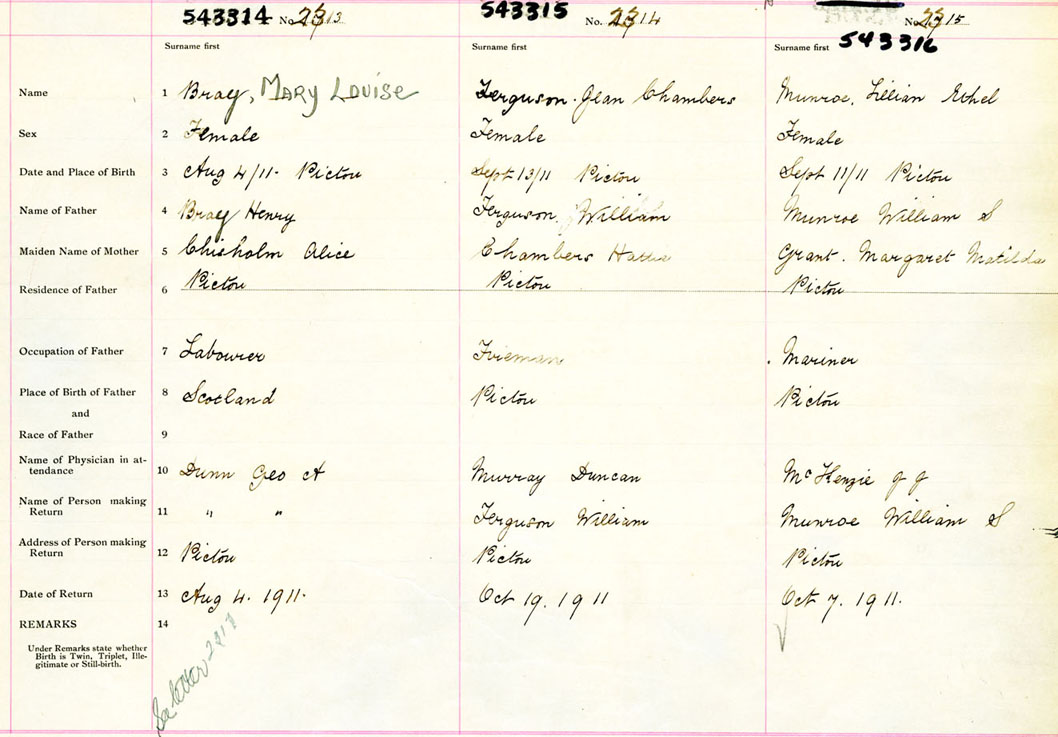 543314 No. 2313 543315 No. 2314 No. 2315
Surname first Surname first Surname first 543316
Name 1 Bray, Mary Louise Ferguson. Jean Chambers Munroe, Lillian Ethel
Sex 2 Female Female Female
Date and Place of Birth 3 Aug 4/11. Pictou Sept 13/11 Pictou Sept 11/11 Pictou
Name of Father 4 Bray Henry Ferguson. William Munroe William S
Maiden Name of Mother 5 Chisholm Alice Chambers Hattie Grant. Margaret Matilda
Residence of Father 6 Pictou Pictou Pictou
Occupation of Father 7 Labourer Mariner
Place of Birth of Father 8 Scotland Pictou Pictou
and
Race of Father 9
Name of Physician in at-
tendance 10 Dunn Geo A Murray Duncan McKenzie J J
Name of Person making
Return 11 " " Ferguson William Munroe William S
Address of Person making
Return 12 Pictou Pictou Pictou
Date of Return 13 Aug 4. 1911. Oct 19. 1911 Oct 7. 1911.
REMARKS 14
Under Remarks state whether
Birth is Twin, Triplet, Ille-
gitimate or Still-birth.
letter